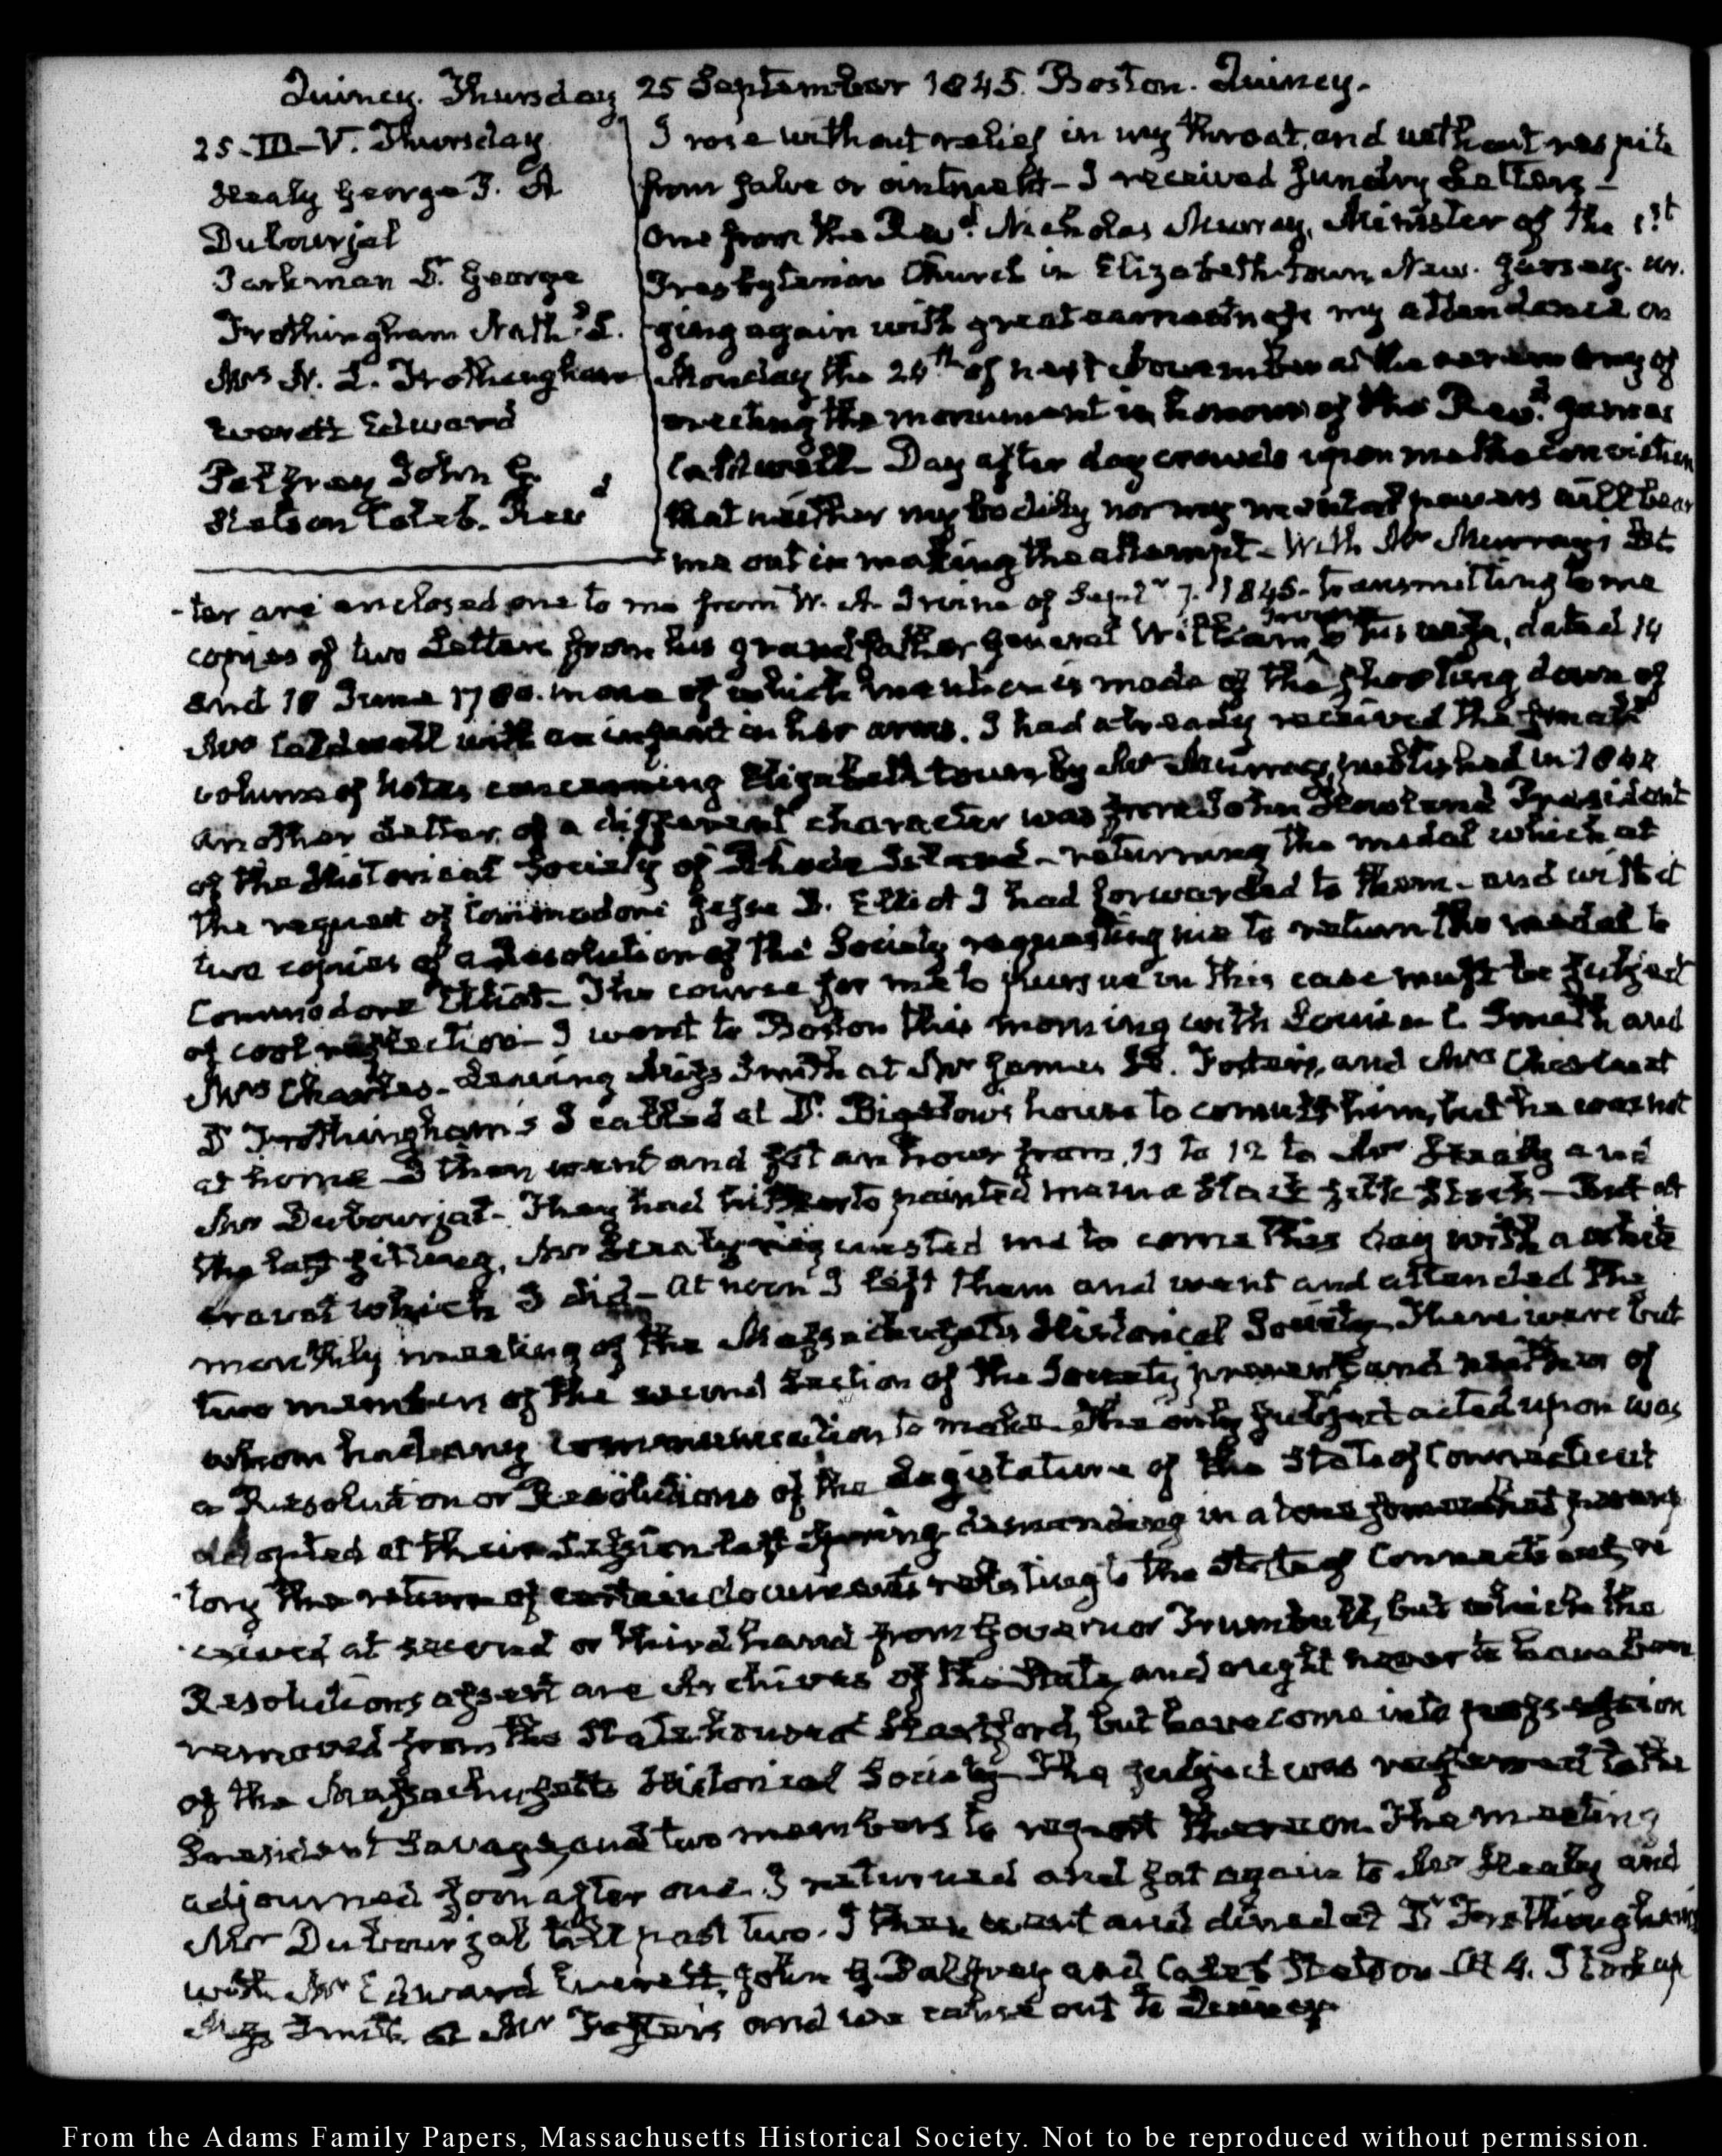 Quincy. Thursday 25 September 1845. Boston. Quincy.
25. III–V. Thursday
Healy George P. A
Dubourjal
Parkman D. George
Frothingham Nath.l L.
Mrs N. L. Frothingham
Everett Edward
Palfrey John G.
Stetson Caleb. Revd
I rose without relief in my throat, and without respite
from salve or ointment – I received sundry Letters –
One from the Revd. Nicholas Murray, Minister of the 1st
Presbyterian Church in Elizabeth-town New-Jersey. ur-
ging again with great earnestness my attendance on
Monday the 24th of next November at the ceremony of
erecting the monument in honour of the Revd. James
Caldwell – Day after day crowds upon me the conviction
that neither my bodily nor my mental powers will bear
me out in making the attempt – With Mr Murray's Let-
-ter are enclosed one to me from W. A. Irvine of Septr 7. 1845. transmitting to me
copies of two Letters from his grandfather General William Irvine to his wife, dated 14
and 18 June 1780. in one of which mention is made of the shooting down of
Mrs Caldwell with an infant in her arms. I had already received the small
volume of notes concerning Elizabeth town, by Mr Murray, published in 1844
Another Letter, of a different character was from John Howland President
of the Historical Society of Rhode Island – returning the medal which at
the request of Commodore Jesse D. Elliot I had forwarded to them – and with it
two copies of a Resolution of the Society requesting me to return the medal to
Commodore Elliot – The course for me to pursue in this case must be subject
of cool reflection – I went to Boston this morning with Louisa C. Smith and
Mrs Charles – leaving Miss Smith at Mr James H. Foster's, and Mrs Charles at
Dr Frothingham's I called at Dr. Bigelow's house to consult him, but he was not
at home – I then went and sat an hour from 11 to 12 to Mr Healy and
Mr Dubourjal – They had hitherto painted me in a black silk stock – But at
the last sitting, Mr Healy requested me to come this day with a white
cravat which I did – At noon I left them and went and attended the
monthly meeting of the Massachusetts Historical Society. There were but
two members of the second section of the Society present and neither of
whom had any communication to make. The only subject acted upon was
a Resolution or Resolutions of the Legislature of the State of Connecticut
adopted at their Session last Spring demanding in a tone somewhat peremp-
-tory the return of certain documents relating to the State of Connecticut, re
-ceived at second or third hand from Governor Trumbull, but which the
Resolutions assert are Archives of the State, and ought never to have been
removed from the State house at Hartford, but have come into possession
of the Massachusetts Historical Society – The subject was referred to the
President Savage, and two members to report thereon. The meeting
adjourned soon after one. I returned and sat again to Mr Healy and
Mr Dubourjal till past two. I then went and dined at Dr Frothingham's
with Mr Edward Everett, John G. Palfrey and Caleb Stetson – At 4. I took up
Miss Smith at Mr Foster's and we came out to Quincy.
From the Adams Family Papers, Massachusetts Historical Society. Not to be reproduced without permission.